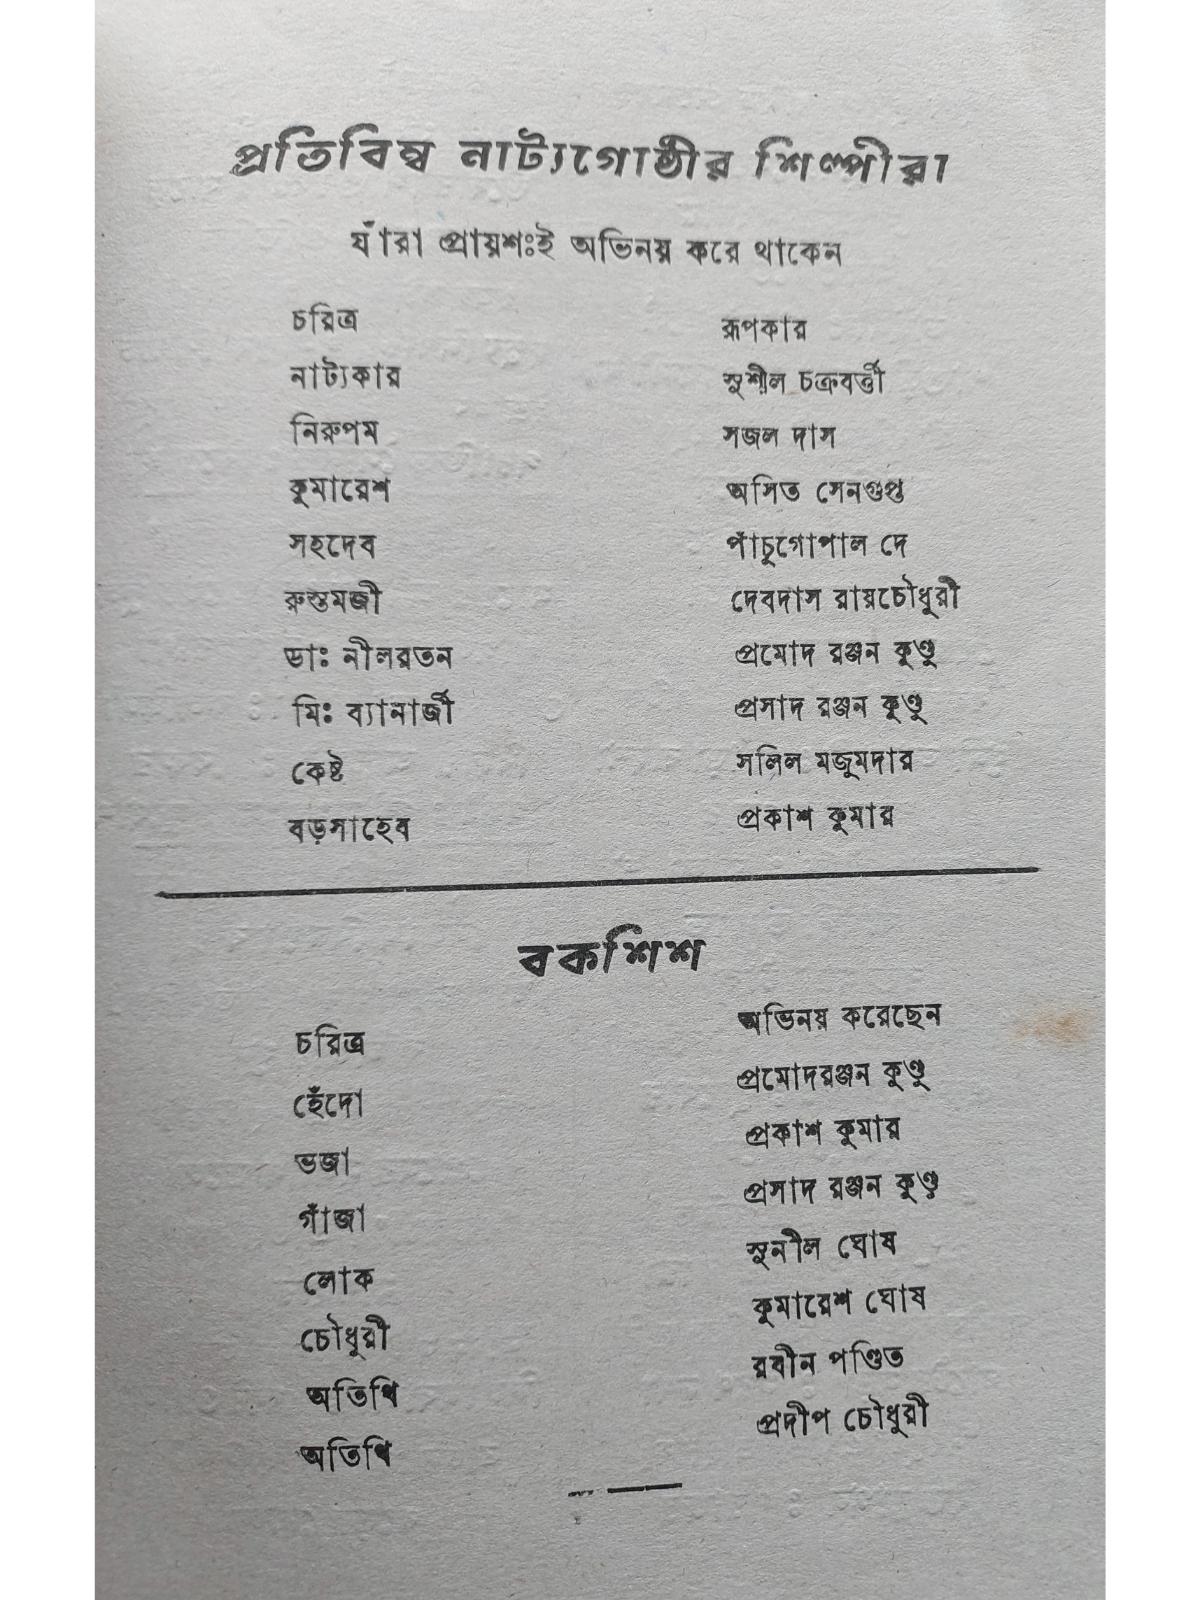 প্রতিবিম্ব নাট্যগোষ্ঠীর শিল্পীরা
যাঁরা প্রায়শঃই অভিনয় করে থাকেন
চরিত্র রূপকার
নাট্যকার সুশীল চক্রবর্ত্তী
নিরুপম সজল দাস
কুমারেশ অসিত সেনগুপ্ত
সহদেব পাঁচুগোপাল দে
রুস্তমজী দেবদাস রায়চৌধুরী
ডাঃ নীলরতন প্রমোদ রঞ্জন কুণ্ডু
মিঃ ব্যানার্জী প্রসাদ রঞ্জন কুণ্ডু
কেষ্ট সলিল মজুমদার
বড়সাহেব প্রকাশ কুমার
বকশিশ
চরিত্র অভিনয় করেছেন
হেঁদো প্রমোদরঞ্জন কুণ্ডু
ভজা প্রকাশ কুমার
গাঁজা প্রসাদ রঞ্জন কুণ্ডু
লোক সুনীল ঘোষ
চৌধুরী কুমারেশ ঘোষ
অতিথি রবীন পণ্ডিত
অতিথি প্রদীপ চৌধুরী